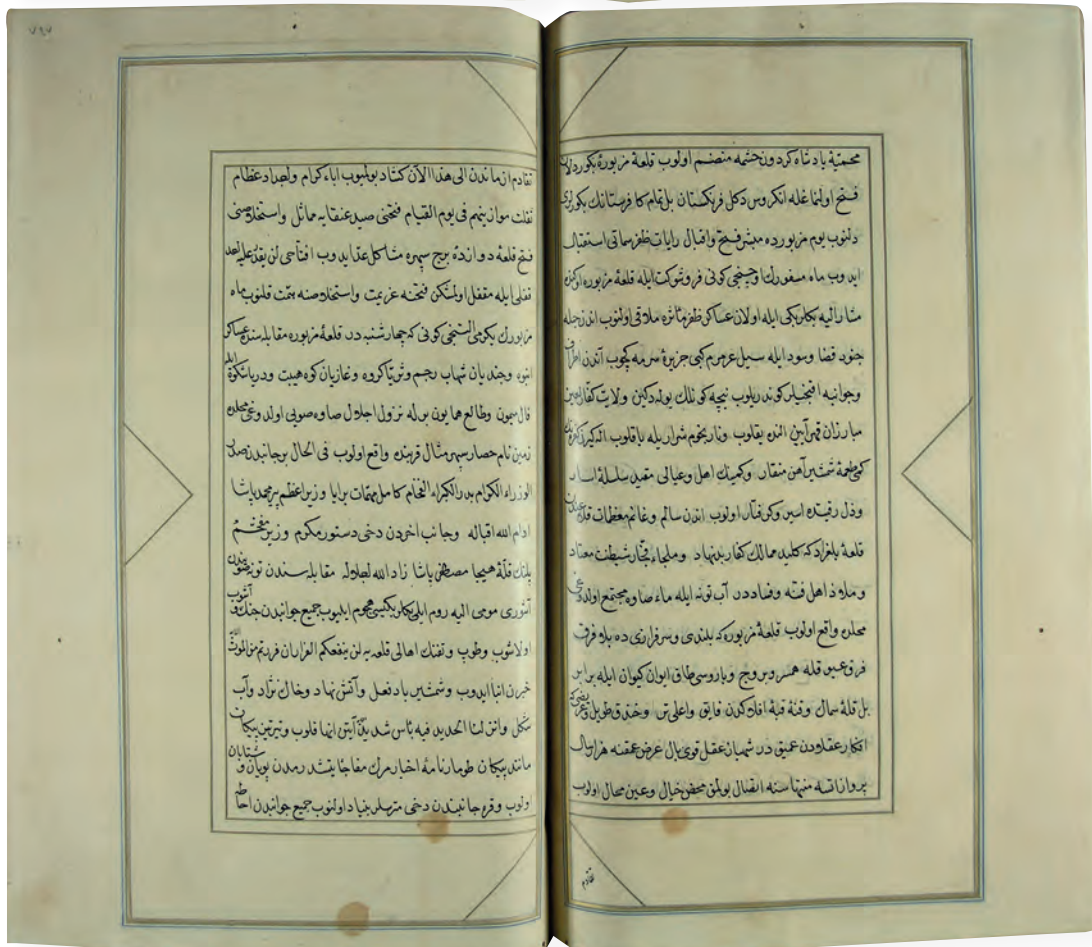 محمیة پادشاه کردون حشمه منضم اولوب قلعۀ مزبورۀ بکوردلن
فتح اولنماغله انکروس دکل فرنکستان بل تمام کافرستانك بکولری
دلنوب یوم مزبورده مبشر فتح واقبال رایات ظفر سماتی استقبال
ایدوب ماه مسفورك اوچنجی کونی فر وشوکت ایله قلعۀ مزبوره اوکنده
مشارالیه بکلربکی ایله اولان عساکر ظفر مآثره ملاقی اولنوب اندن جمله
جنود قضا وسود ایله سیل عرمرم کبی جزیرۀ سرمه کچوب آندن اطراف
وجوانبه اقنجیلر کوندریلوب نیچه کونلك یوله دکین ولایت کفار لعین
مبارزان قهر آیین النده یقلوب ونار بخوم شرار یله یاقلوب
طعمۀ شمشیر آهن منقار وکمینك اهل وعیالی مقید سلسلۀ اسار
وذل رقیتده اسیر وکرفتار اولوب اندن سالم وغانم معظمات قلاعدن
قلعۀ بلغراد که کلید ممالك کفار بدنهاد وملجاء فجار شیطنت معتاد
وملاذ اهل فتنه وفساددر آب تونه ایله ماء صاوه مجتمع اولدوغی
محلده واقع اولوب قلعۀ مزبوره که بلندی وسرفرازی ده بلاد فرق
فرق عیوق قله همسر وبروج وباروسی طاق ایوان کیوان ایله برابر
بل قلۀ سمال وقنۀ قبۀ افلاکدن فایق واعلی تر وخندق طویل وعریضی که
افکار عقلادن عمیق در شهباز عقل قوی بال عرض عمقنه هزار سال
پرواز اتسه منتهاسنه انتقال بولمق محض خیال وعین محال اولوب
تقادم
٧٩٧
تقادم ازماندن الی هذا الآن کشاد بولمیوب اباء کرام واجداد عظام
ثقلت موازینهم فی یوم القیام فتحنی صید عنقایه مماثل واستخلاصنی
فتح قلعۀ دوازدۀ برج سپهره مشاکل عد ایدوب افتاحی لن یقدر علیه احد
قفلی ایله مقفل اولمشکن فتحنه عزیمت واستخلاصنه همت قلنوب ماه
مزبورك یکرمی التنجی کونی که چهارشنبه در قلعۀ مزبوره مقابله سنده عساکر
انبوه وجندیان شهاب رجم وثریا کروه وغازیان کوه هیبت ودریا شکوه ایله
فال میمون وطالع همایون برله نزول اجلال صاوه صویی اولدوغی محلده
زمین نام حصار سپهر مثال قربنده واقع اولوب فی الحال بر جانبدن صدر
الوزراء الکرام بدر الکبراء الفخام کامل مهمات برایا وزیر اعظم پیر محمد پاشا
ادام الله اقباله وجانب اخردن دخی دستور مکرم وزیر مفخم
پلنك قلۀ هیجا مصطفی پاشا زاد الله اجلاله مقابله سندن تونه صویندن
آشوری مومی الیه روم ایلی بکلربیکیسی هجوم ایلیوب جمیع جوانبدن جنك وآشوب
اولاشوب وطوب وتفنك اهالی قلعه یه لن ینفعکم الفرار ان فررتم من الموت
خبرن انبا ایدوب وشمشیر باد فعل وآتش نهاد وخاك نژاد وآب
شکل وانزلنا الحدید فیه بأس شدید آیتن انها قلوب وتیر تیز پیکان
مانند پیکان طومار نامۀ اخبار مرك مفاجا یتشدرمدن پویان وشتابان
اولوب وقره جانبندن دخی مترسلر بنیاد اولنوب جمیع جوانبدن احاطه